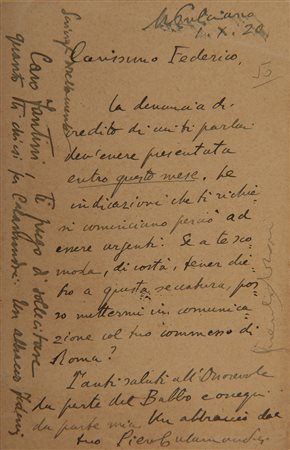 1.X.20
Carissimo Federico,
la denuncia di
reddito di cui ti parlai
dev'essere presentata
entro questo mese. Le
indicazioni che ti richie-
si cominciano perciò ad
essere urgenti. Se a te sco-
moda, di costà, tener die-
tro a questa seccatura, pos-
so mettermi in comunica-
zione col tuo commesso di
Roma?
Tanti saluti all'Onorevole
da parte del Babbo e ossequi
da parte mia. Un abbraccio dal
tuo Piero Calamandrei
Caro Santini, ti prego di sollecitare
quanto ti chiesi per Calamandrei. Un abbraccio